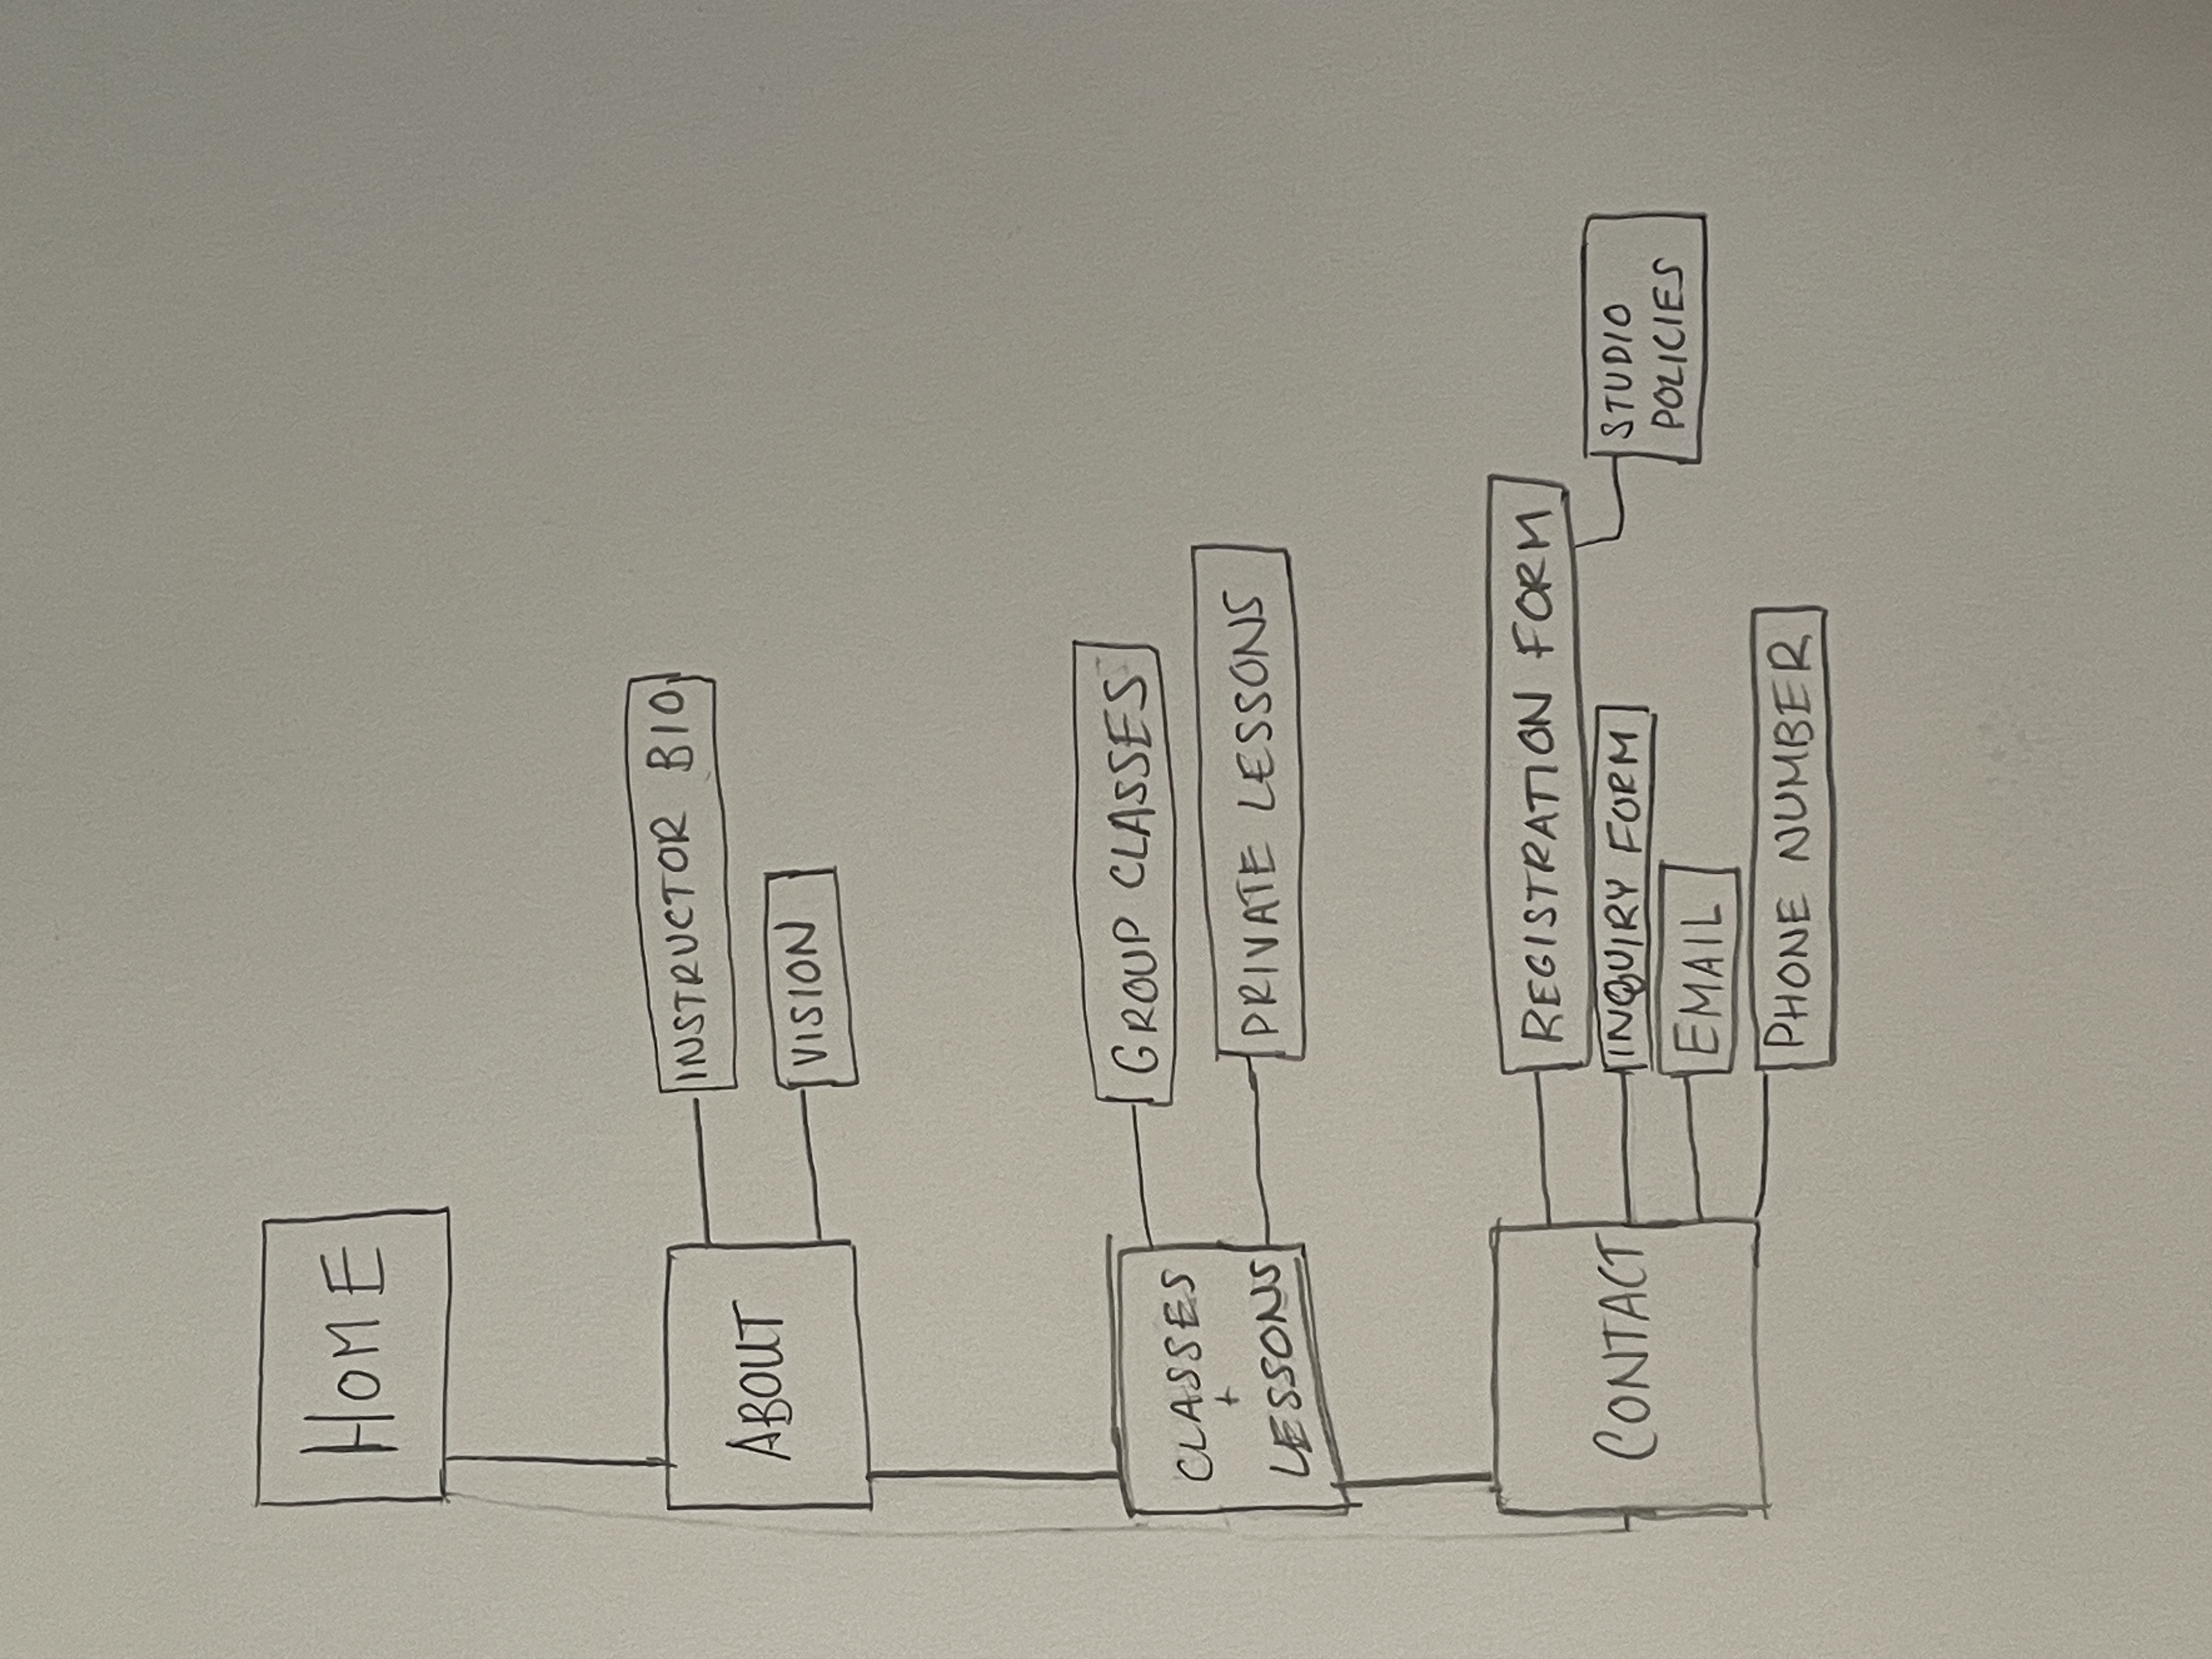 HOME
ABOUT
INSTRUCTOR BIO
VISION
CLASSES
+
LESSONS
GROUP CLASSES
PRIVATE LESSONS
CONTACT
REGISTRATION FORM
STUDIO
POLICIES
INQUIRY FORM
EMAIL
PHONE NUMBER